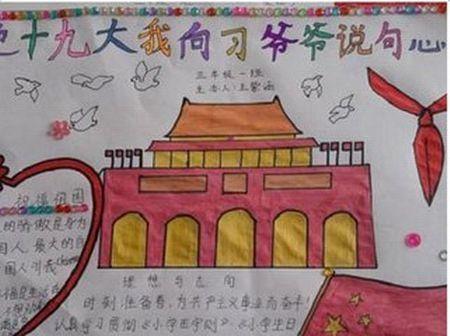 十九大我向习爷爷说句心
三年级一班
主办人:王紫涵
祝福祖国
的骄傲是身为
国人,最大的自
理想与志向
时刻准备着,为共产主义事业而奋斗!
认真学习贯彻《小学生守则》《小学生日